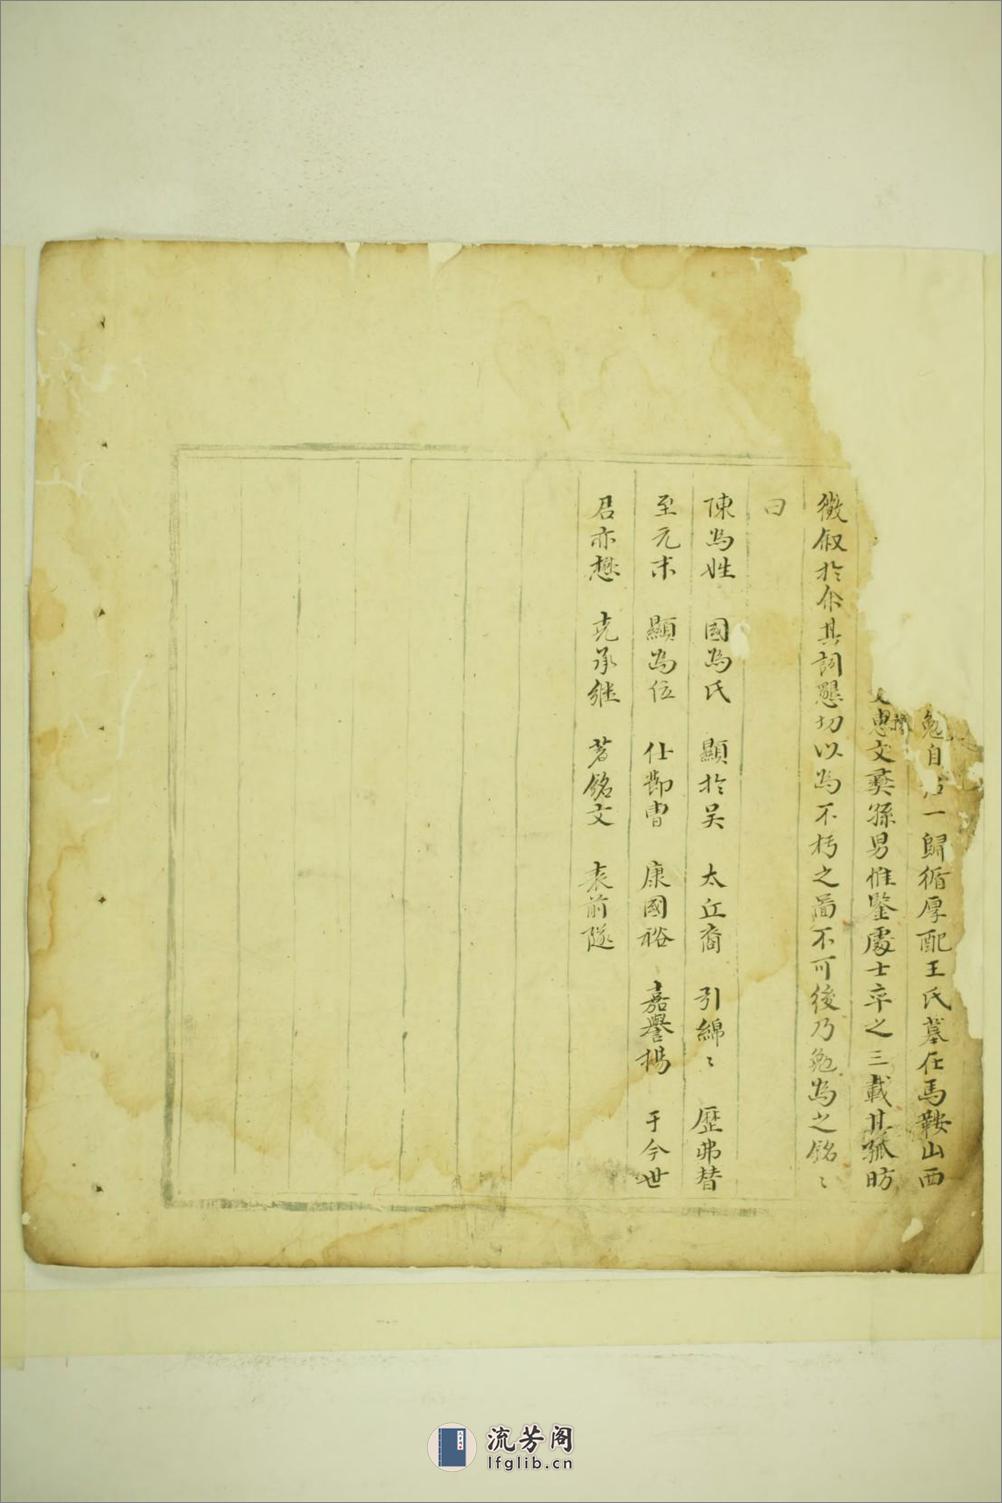 勉自 一歸循厚配王氏墓在馬鞍山西
惠文彝孫男惟鑒處士卒之三載其孤昉
徵叙於余其詞懇切以為不朽之啚不可後乃勉為之銘〻
曰
陳為姓 國為氏 顯於吴 太丘裔 引綿〻 歷弗替
至元末 顯為位 仕節曺 康國裕 嘉譽揚 于今世
君亦懋 克承継 茗銘文 表前隧
流芳阁
lfglib.cn